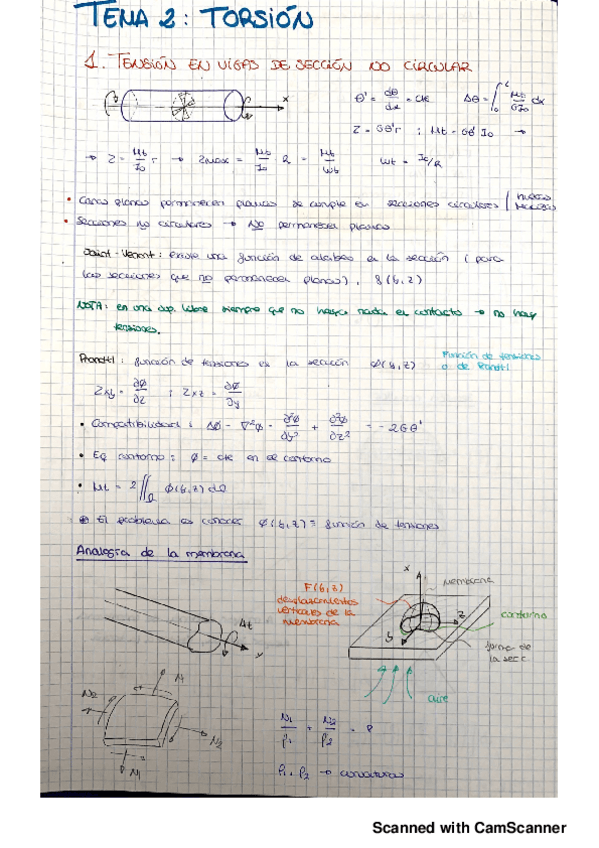 TEMA 2: TORSIÓN
1. TENSIÓN EN VIGAS DE SECCIÓN NO CIRCULAR
x
θ' = dθ/dx = cte   Δθ = ∫₀ᴸ Mt/GI₀ dx
τ = Gθ'r ; Mt = Gθ' I₀ →
→ τ = Mt/I₀ r → τmax = Mt/I₀ R = Mt/Wt   Wt = I₀/R
• Caras planas permanecen planas se cumple en secciones circulares
• Secciones no circulares → NO permanecen planas
Saint-Venant: existe una función de alabeo en la sección (para
las secciones que no permanecen planas),
NOTA: en una sup. libre siempre que no haya nada en contacto → no hay
tensiones.
Prandtl: función de tensiones en la sección φ(y,z)
Función de tensiones
o de Prandtl
τxy = ∂φ/∂z ; τxz = ∂φ/∂y
• Compatibilidad: Δφ = ∇²φ = ∂²φ/∂y² + ∂²φ/∂z² = -2Gθ'
• Eq contorno: φ = cte en el contorno
• Mt = 2∬Ω φ(y,z) dΩ
El problema es conocer φ(y,z) = función de tensiones
Analogía de la membrana
F(y,z)
desplazamientos
verticales de la
membrana
x
membrana
z
contorno
y
forma de
la secc.
aire
Mt
x
N2
N2
N1
N1/ρ1 + N2/ρ2 = P
ρ1, ρ2 → curvaturas
Scanned with CamScanner